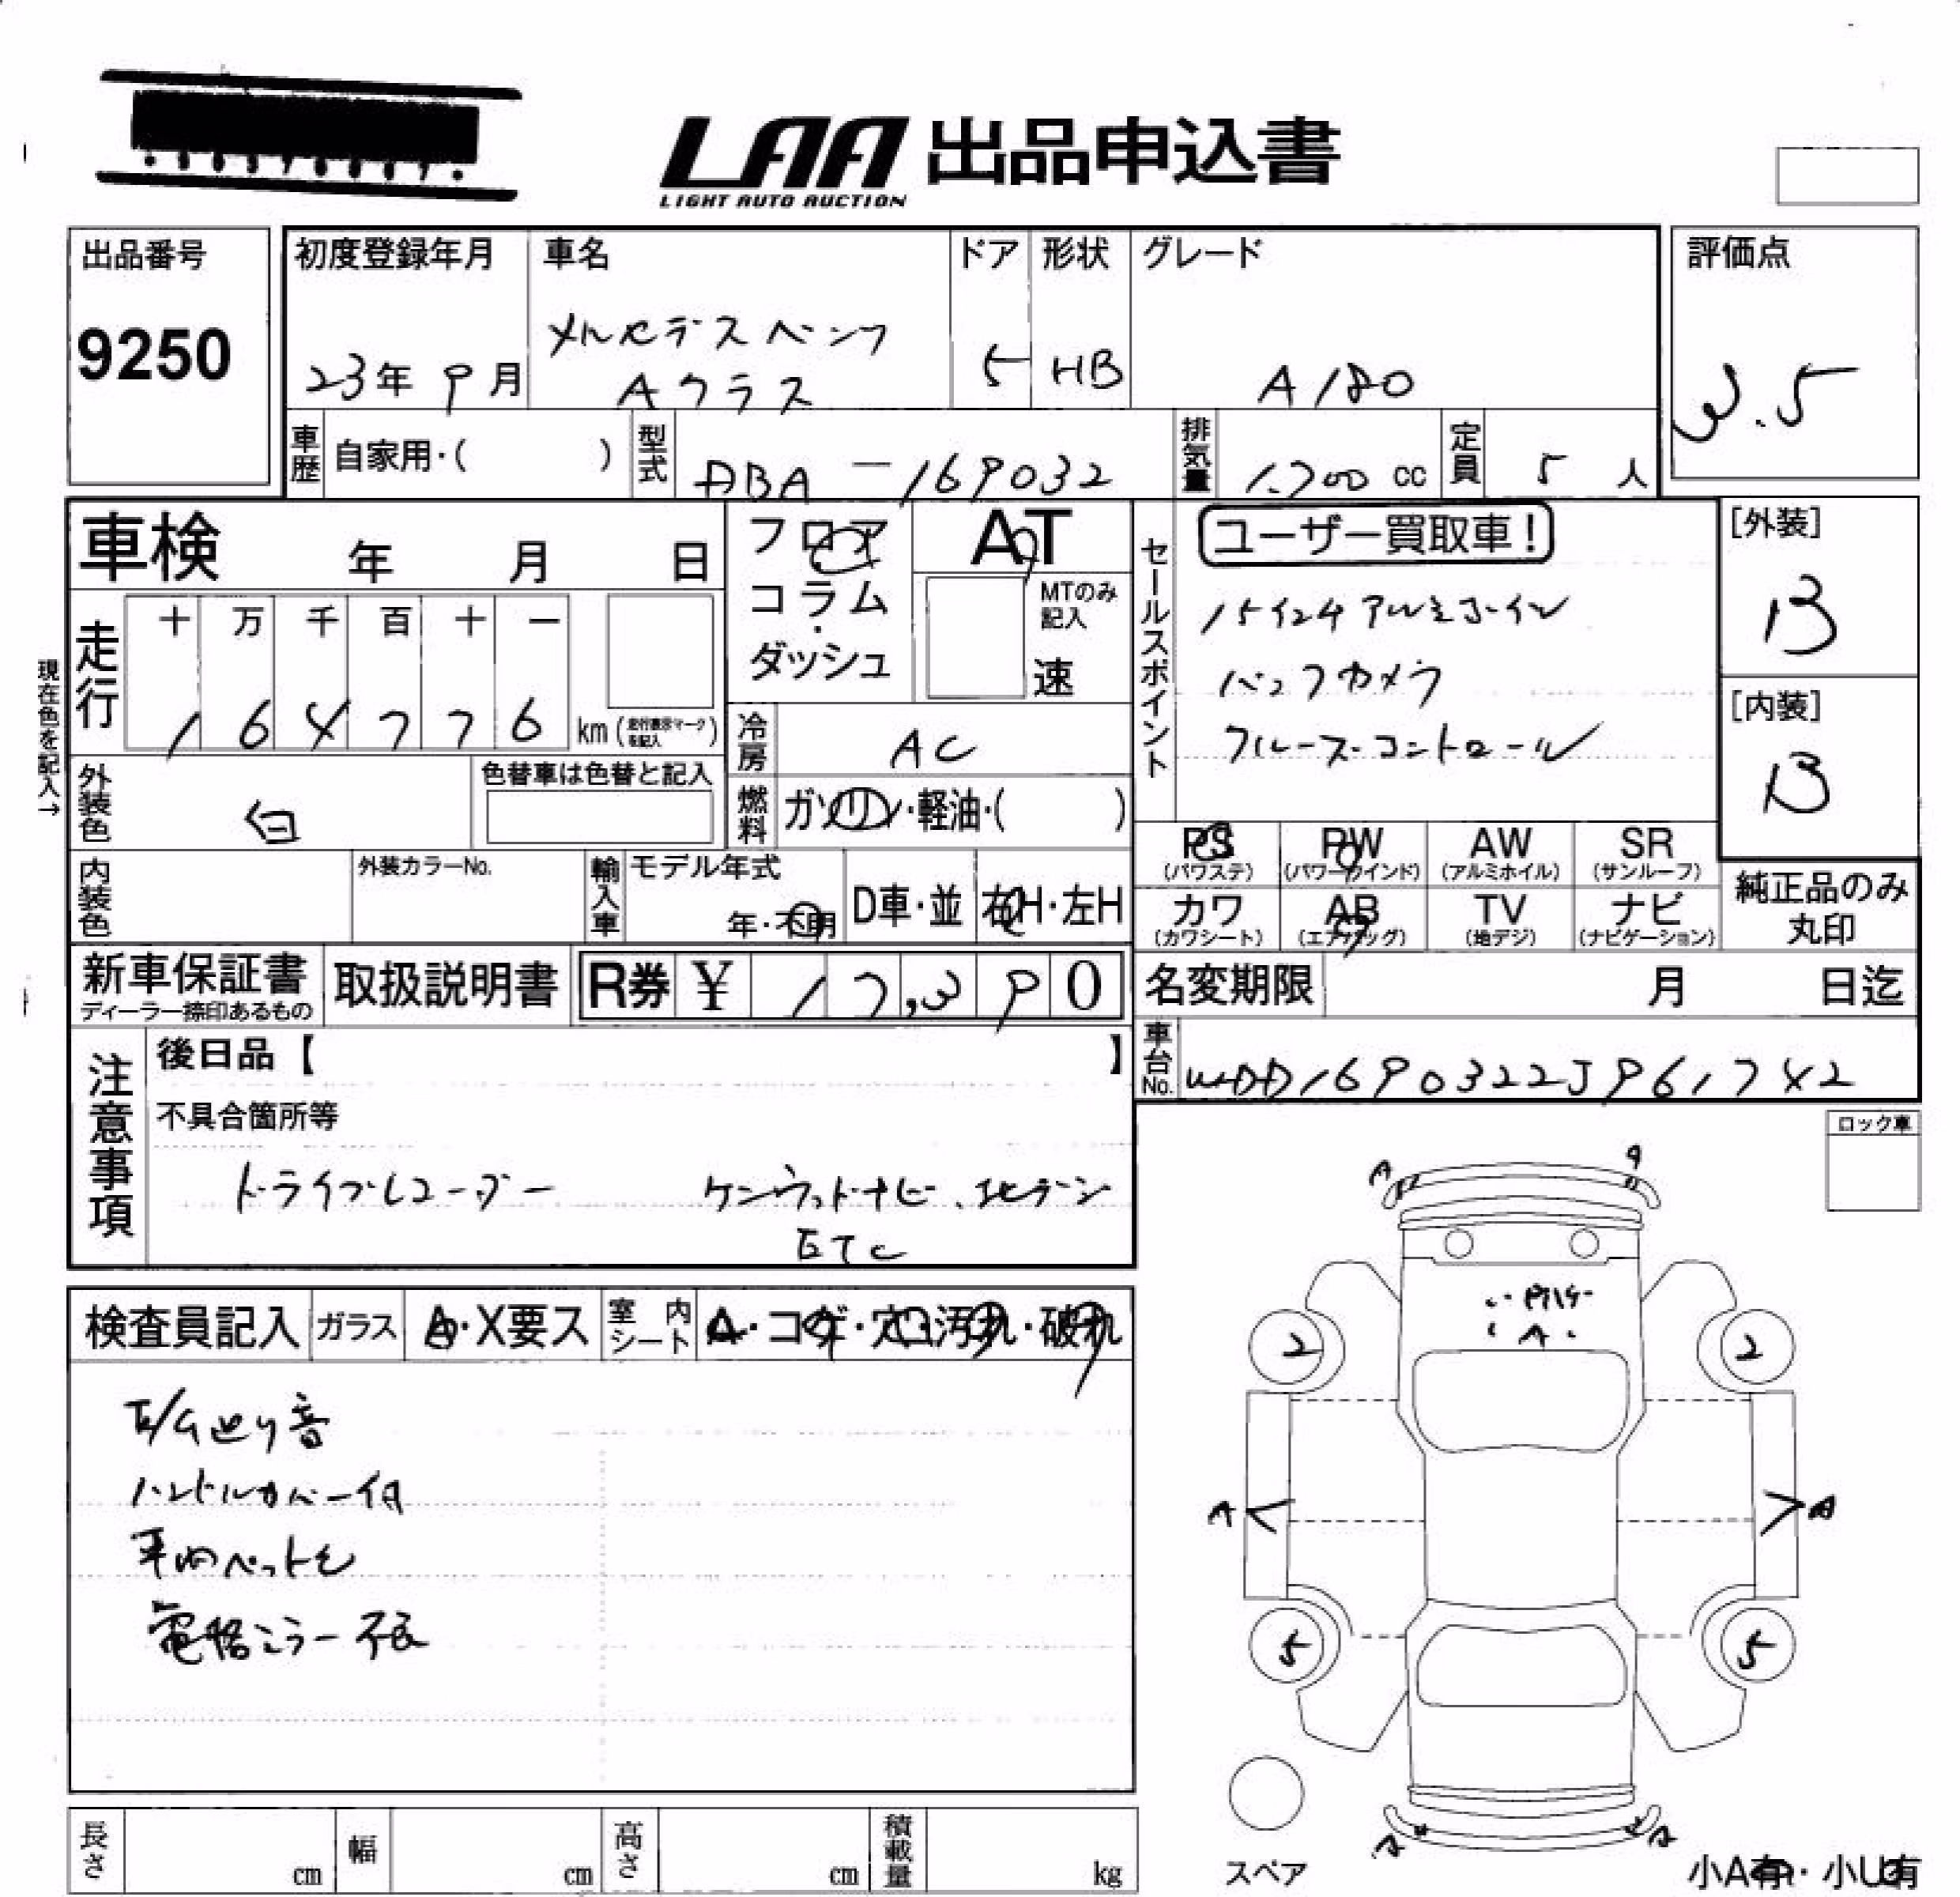 LAA 出品申込書
LIGHT AUTO AUCTION
出品番号
9250
初度登録年月
23年 9月
車名
メルセデスベンツ
Aクラス
ドア
5
形状
HB
グレード
A180
評価点
3.5
車歴 自家用・( )
型式 DBA-169032
排気量 1,700 cc
定員 5 人
車検 年 月 日
フロア
コラム
・
ダッシュ
AT
MTのみ記入
速
走行
十 万 千 百 十 一
1 6 4 7 7 6 km (走行表示マークを記入)
現在色を記入→
冷房 AC
外装色 白
色替車は色替と記入
燃料 ガソリン・軽油・( )
内装色
外装カラーNo.
輸入車
モデル年式
年・不明
D車・並
右H・左H
セールスポイント
ユーザー買取車!
15インチアルミホイル
バックカメラ
クルーズコントロール
[外装]
B
[内装]
B
PS (パワステ)
PW (パワーウインド)
AW (アルミホイル)
SR (サンルーフ)
カワ (カワシート)
AB (エアバッグ)
TV (地デジ)
ナビ (ナビゲーション)
純正品のみ
丸印
新車保証書
ディーラー捺印あるもの
取扱説明書
R券 ¥ 17,390
名変期限 月 日迄
車台No. WDD1690322J961742
注意事項
後日品【 】
不具合箇所等
ドライブレコーダー ケンウッドナビ、地デジ
ETC
ロック車
検査員記入
ガラス A・X要ス
室内シート A・コゲ・穴・汚れ・破れ
E/G廻り音
ハンドルカバー付
車内ペット毛
電格ミラー不良
A A
A
2 2
A A
5 5
A A
スペア
小A有・小U有
長さ cm
幅 cm
高さ cm
積載量 kg